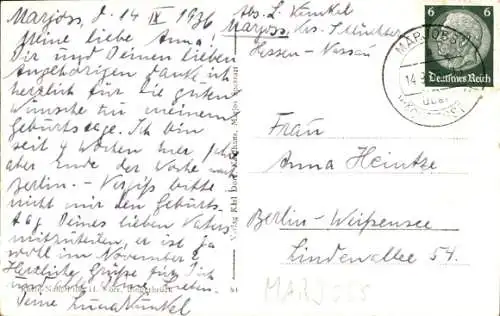 Marjoss, d. 14 IX 1936
Meine liebe Anna!
Dir und Deinen lieben
Angehörigen danke ich
herzlich für die guten
Wünsche zu meinem
Geburtstage. Ich bin
seit 4 Wochen hier
aber Ende der Woche
Berlin. - Vergiß bitte
nicht mir den Geburts-
tag Deines lieben Vaters
mitzuteilen, er ist ja
wohl im November?
Herzliche Grüße für Dich
und
Deine Kunkel
Abs. L. Kunkel
Marjoss, Krs. Schlüchtern
Hessen-Nassau
6 6
Deutsches Reich
MARJOSS
14.9.
über
Frau
Anna Heintze
Berlin-Weißensee
Lindenallee 54.
MARJOSS